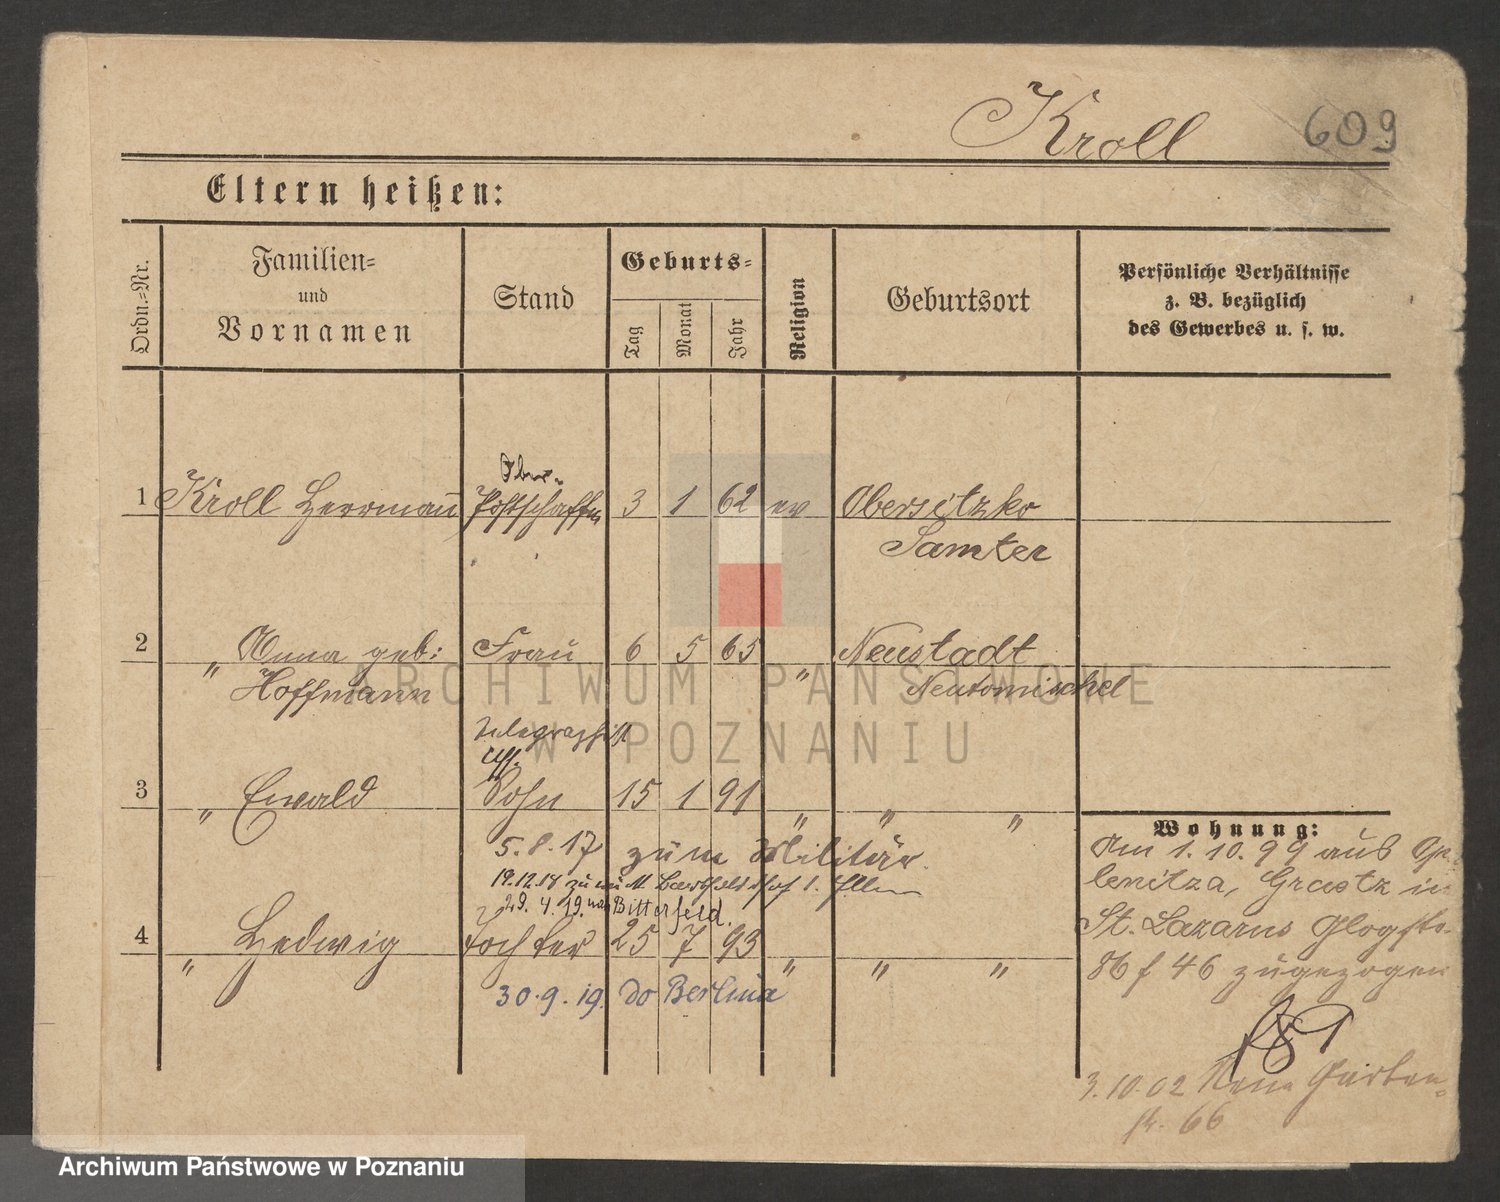 Kroll 609
Eltern heißen:
Ordn.=Nr.
Familien=
und
Vornamen
Stand
Geburts=
Tag
Monat
Jahr
Religion
Geburtsort
Persönliche Verhältnisse
z. B. bezüglich
des Gewerbes u. s. w.
Ober-
1 Kroll Herrmann Postschaffn 3 1 62 ev Obersitzko
Samter
2 " Anna geb: Frau 6 5 65 " Neustadt
Hoffmann Neutomischel
Telegraphist
3 " Ewald Sohn 15 1 91 " " "
5.8.17 zum Militär.
19.12.18
29.4.19. nach Bitterfeld.
4 " Hedwig Tochter 25 7 93 " " "
30.9.19. do Berlina
Wohnung:
Am 1.10.99 aus
lenitza, Graetz in
St. Lazarus Glogstr.
86 f 46 zugezogen
3.10.02 Neue Garten=
str. 66
ARCHIWUM PAŃSTWOWE
W POZNANIU
Archiwum Państwowe w Poznaniu